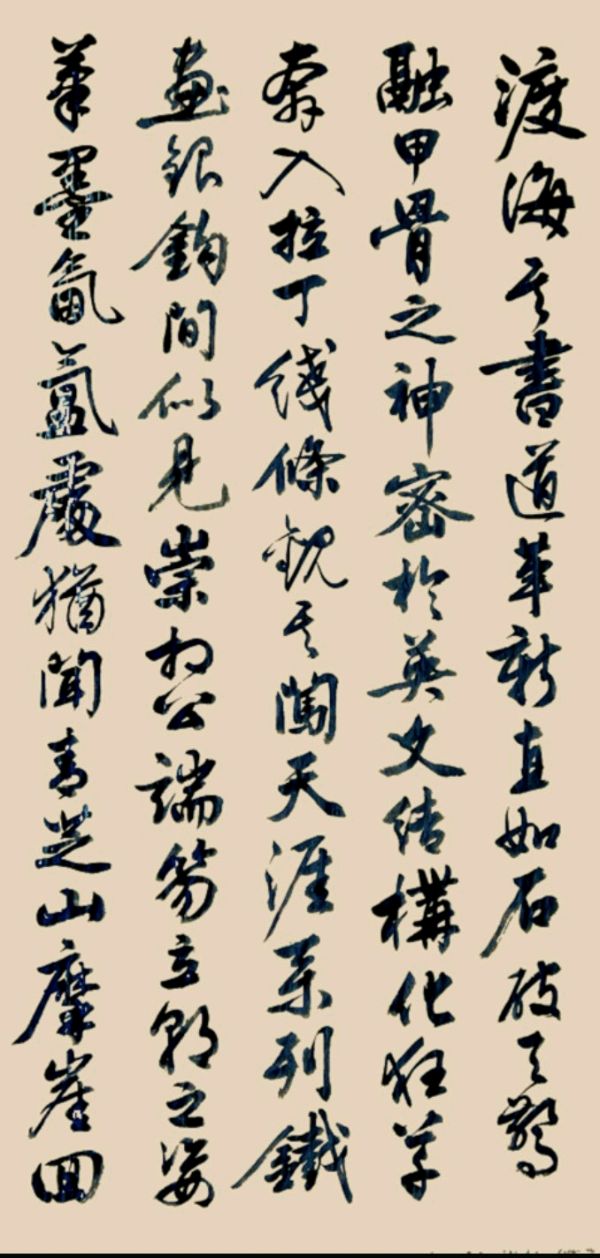 渡海其書道革新直如石破天驚
融甲骨之神密於英文结構化狂草
奔入拉丁线條觀其闖天涯系列鐵
畫銀鉤間似見崇相公端笏立朝之姿
筆墨氤氳處猶聞青芝山摩崖回